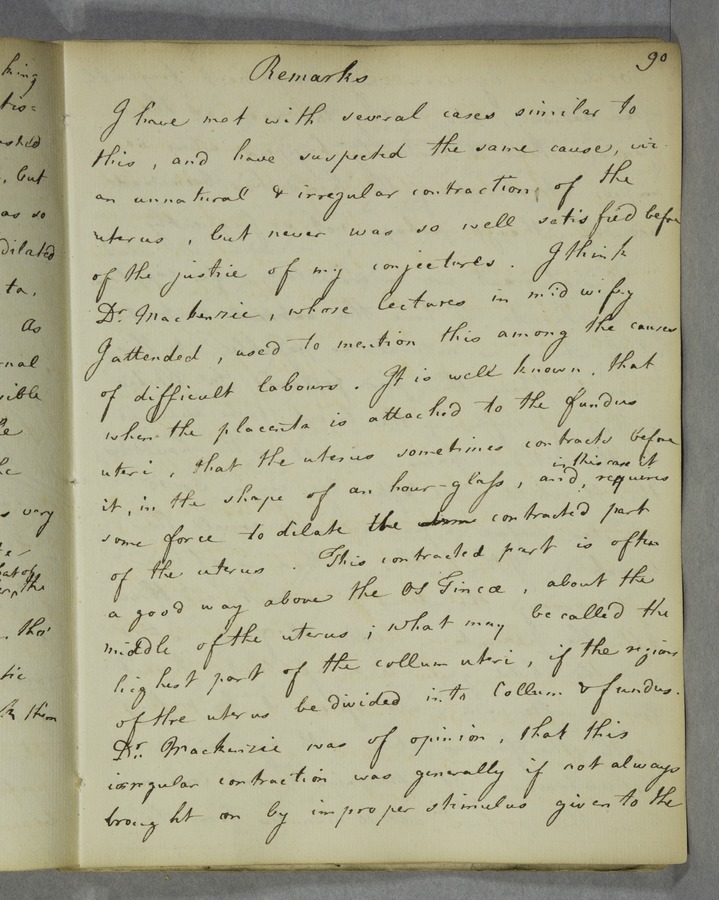 90
Remarks
I have met with several cases similar to
this, and have suspected the same cause, viz.
an unnatural & irregular contraction of the
uterus, but never was so well satisfied before
of the justice of my conjectures. I think
Dr. Mackenzie, whose lectures in midwifry
I attended, used to mention this among the causes
of difficult labours. It is well known, that
when the placenta is attached to the fundus
uteri, that the uterus sometimes contracts before
it, in the shape of an hour-glass, and, in this case it requires
some force to dilate the contracted part
of the uterus. This contracted part is often
a good way above the Os Tincæ, about the
middle of the uterus; what may be called the
highest part of the collum uteri, if the regions
of the uterus be divided into Collum & fundus.
Dr. Mackenzie was of opinion, that this
irregular contraction was generally if not always
brought on by improper stimulus given to the
king
tis=
but
as so
dilated
ta.
As
very
the
tho'
them